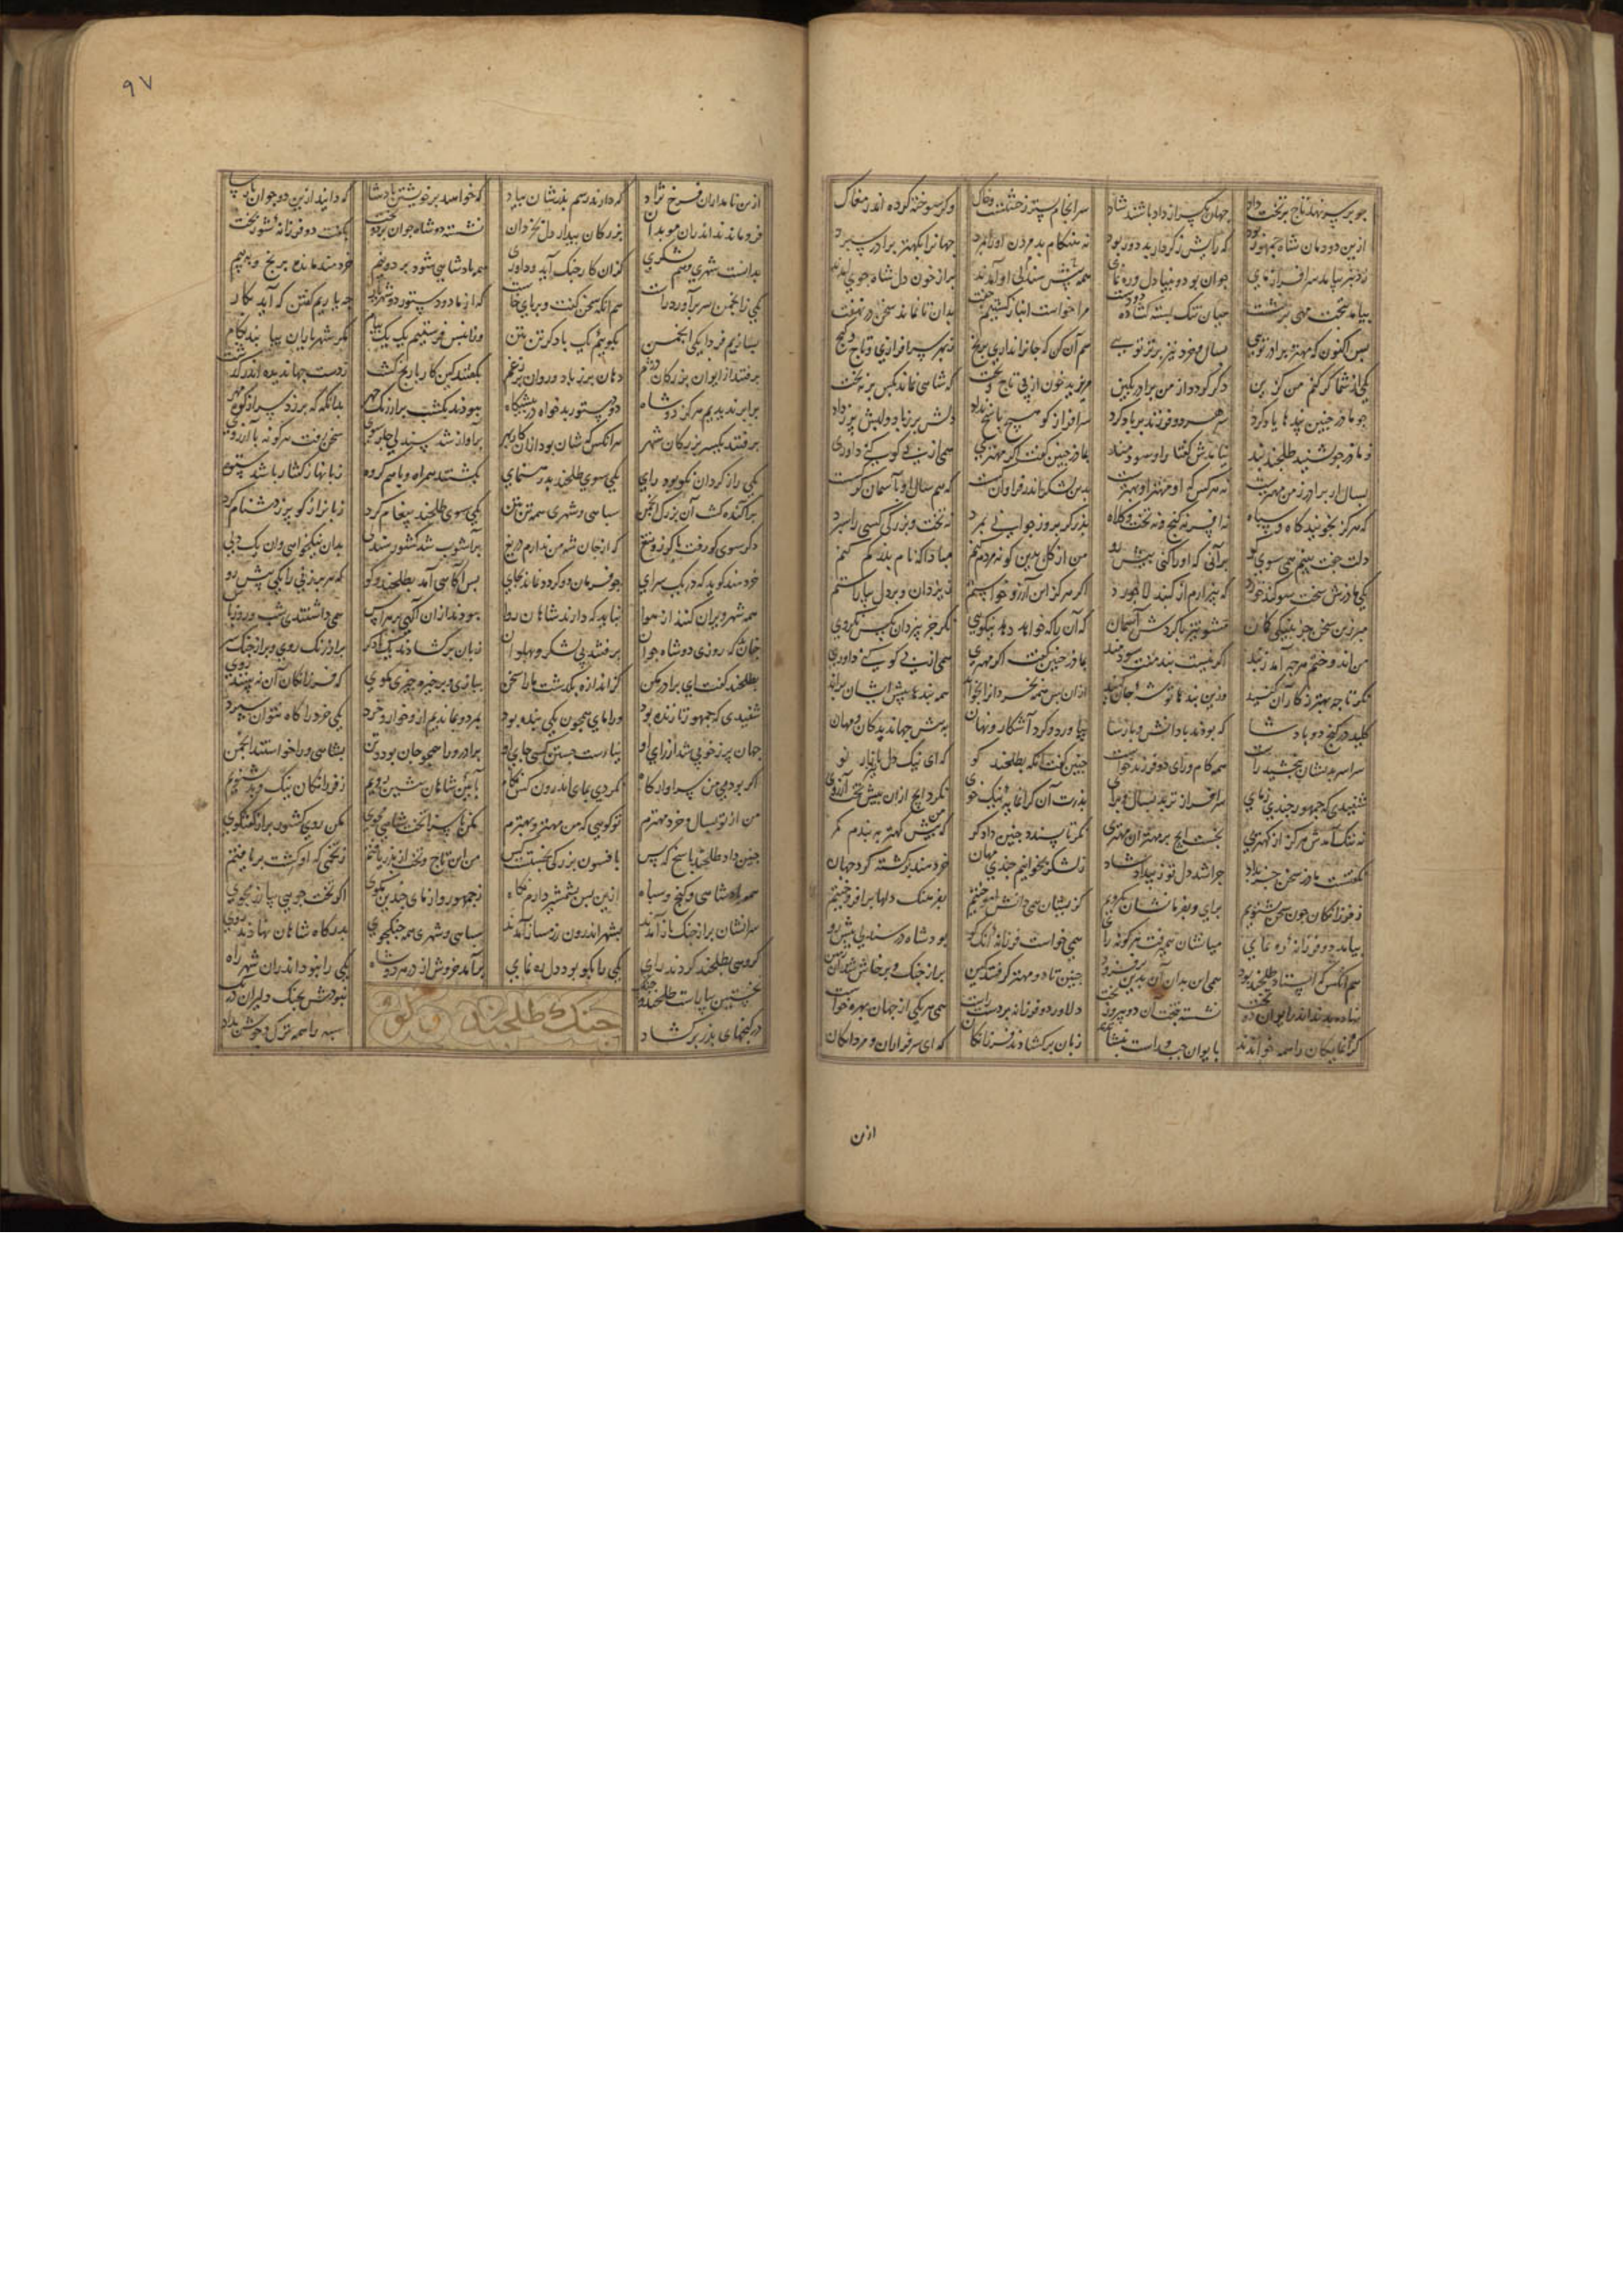 جو بر سر نهد تاج بر تخت داد جهان یکسر از داد باشند شاد سرانجام بستر ز خشتست و خاک وکر سوخته کرده اندر مغاک
ازین دودمان شاه جمهور بود که رایش ز کردار بد دور بود نه هنکام بد مردن او را بمرد جهانرا بکهتر برادر سپرد
ز دنبر بیامد سرافراز مای جوان بود و بینا دل و ره نمای همه پیش سندلی او آمدند بر از خون دل شاه جوی آمدند
بیامد بتخت مهی بر نشست میان تنک بسته کشاده دو دست مرا خواست انباز کشتیم جفت بدان تا نماند سخن در نهفت
بس اکنون که مهتر برادر تویی بسال و خرد نیز برتر تویی هم آن کن که جانرا نداری برنج ز بهر سرافرازی و تاج و کنج
یکی از شما کر کنم من کزین دکر کردد از من بر از درد و کین مریزید خون از پی تاج و تخت که شاهی نماند بکس بر نه بخت
جو مادر جنین بندها یاد کرد سر هر دو فرزند بر باد کرد سرافراز کو هیچ باسخ نداد
ز مادر جو بشنید طلحند بند نیامدش کفتار او سودمند بمادر جنین کفت اکر مهتری همی از پی کو کنی داوری
بسال ار برادر ز من مهترست نه هر کس که او مهتر او بهترست بدین لشکر اندر فراوان کسست که هم سال او با آسمان کرکسست
که هرکز نجویند کاه و سپاه نه افسر نه کنج و نه تخت و کلاه بدر کر بروز جوانی بمرد نه تخت بزرکی کسی را سپرد
دلت جفت بینم همی سوی کو برآنی که او را کنی پیش رو من از کل بدین کونه مردم کنم مبادا که نام بدر کم کنم
یکی مادرش سخت سوکند خورد که بیزارم از کنبد لاجورد اکر هرکز این آرزو خواستم ز یزدان و بر دل بیاراستم
مبر زین سخن جز بنیکی کمان مشو تیز با کردش آسمان که آن را که خواهد دهد نیکوی نکر جز بیزدان بکس نکروی
من اندوختم هرجه آمد ز بند اکر نیست بند منت سودمند بمادر جنین کفت اکر مهتری همی از پی کو کنی داوری
نکر تا جه بهتر ز کار آن کنید وزین بندها توشه جان کنید ازان بس همه بخردانرا بخواند همه بندها بیش ایشان براند
کلید در کنج دو بادشا که بودند با دانش و پارسا بیاورد و کرد آشکار و نهان به پیش جهاندیدکان و مهان
سراسر بدیشان ببخشید راست همه کام و رای دو فرزند خواست جنین کفت آنکه بطلحند کو که ای نیک دل نامبردار نو
شنیدی که جمهور جندی ز مای سرافراز تر بد بسال و برای بدرت آن کرانمایهٔ نیک خوی نکرد ایچ ازان بیش تخت آرزوی
نه ننک آمدش هرکز از کهتری نجست ایچ بر مهتران مهتری نکر تا پسندد جنین دادکر که من بیش کهتر ببندم کمر
نکفتست مادر سخن جز بداد جرا شد دل تو ز بیداد شاد ز لشکر بخوانیم جندی مهان خردمند و برکشتهٔ کرد جهان
ز فرزانکان جون سخن بشنویم برای و بفرمانشان بکرویم کزیشان همی دانش آموختیم بفرهنک دلها برافروختیم
بیامد دو فرزانهٔ ره نمای میانشان همی رفت هر کونه رای همی خواست فرزانهٔ کو که کو بود شاه در سندلی بیش رو
هم آنکس که استاد طلحند بود همی این بدان آن بدین برفزود جنین تا دو مهتر کرفتند کین بر از جنک و برخاش شد
نهادند بد اندر ایوان دو تخت نشسته بتخت آن دو پیروز بخت دلاور دو فرزانه بر دست راست همی هر یکی از جهان بهره خواست
کرانمایکان را همه خواندند بایوان جب و راست بنشاندند زبان برکشادند فرزانکان که ای سرفرازان و مردانکان
ازین
٩٧
ازین نامداران فرخ نژاد که دارند رسم بدرشان بیاد که خواهید بر خویشتن بادشا که دانید ازین دو جوان پارسا
فرو ماندند اندران موبدان بزرکان بیدار دل بخردان نشسته دو شاه جوان بر دو تخت بکفت دو فرزانهٔ شوربخت
بدانست شهری و هم لشکری کزان کار جنک آید و داوری همه بادشاهی شود بر دو نیم خردمند مانده برنج و ببیم
یکی زانجمن سر برآورد راست هم آنکه سخن کفت و بر پای خاست که از ما دو دستور دو شهریار جه یاریم کفتن که آید بکار
بسازیم فردا یکی انجمن بکوییم یک با دکر تن بتن وزانپس فرستیم یک یک پیام مکر شهریاران بیابند کام
برفتند از ایوان بزرکان دژم دهان بر ز باد و روان بر ز غم بکفتند کین کار با رنج کشت ز دست جهاندیده اندر کذشت
برابر ندیدیم هرکز دو شاه دو دستور بدخواه در پیشکاه ببودند یک شب بر آزنک جهر بدانکه که برزد سر از کوه مهر
برفتند یکسر بزرکان شهر هر آنکس که شان بود ازان کار بهر بر آواز شد سندلی جار سوی سخن رفت هر کونه با آرزوی
یکی را ز کردان بکو بود رای یکی سوی طلحند بد رهنمای زبانها ز کفتار باشد ستوه نکشتند همراه و باهم کروه
براکنده کشت آن بزرک انجمن سپاهی و شهری همه تن بتن یکی سوی طلحند پیغام کرد زبانرا ز کو بر ز دشنام کرد
دکر سوی کو رفت با کرز و تیغ که از جان شه من ندارم دریغ برآشوب شد کشور سندلی بدان نیکخواهی وان یک دلی
خردمند کوید که در یک سرای جو فرمان دو کردد نماند بجای بس آکاهی آمد بطلحند و کو که هر برزنی را یکی پیش رو
همه شهر ویران کنند از هوا نباید که دارند شاهان روا ببودند ازان آکهی بر هراس همی داشتندی شب و روز پاس
جنان کد که روزی دو شاه جوان برفتند بی لشکر و پهلوان زبان برکشادند یک با دکر بر آزنک روی و بر از جنک سر
بطلحند کفت ای برادر مکن کز اندازه بکذشت ما را سخن ببازی و بر خیره جیزی مکوی که فرزانکان آن نه بینند روی
شنیدی که جمهور تا زنده بود ورا مای همجون یکی بنده بود بمرد و بماندیم ما زو خوار و خرد یکی خرد را کاه نتوان سپرد
جهان بر ز خوبی بد از رای او نیارست جستن کسی جای او برادر ورا همجو جان بود و تن بشاهی ورا خواستند انجمن
اکر بودمی من سزاوار کاه نکردی بمای اندرون کس نکاه بآیین شاهان بیشین رویم ز فرزانکان نیک و بد بشنویم
من از تو بسال و خرد مهترم تو کویی که من مهتر و بهترم مکن ناسزا تخت شاهی مجوی مکن روی کشور بر از کفتکوی
جنین داد طلحند باسخ که بس بافسون بزرکی نجستست کس من این تاج و تخت از بدر یافتم ز تخمی که او کشت بر یافتم
همه بادشاهی و کنج و سپاه ازین بس بشمشیر دارم نکاه ز جمهور وز مای جندین مکوی اکر تخت جویی بیا رزم جوی
سرانشان بر از جنک باز آمدند بشهر اندرون رزمساز آمدند سپاهی و شهری همه جنکجوی بدرکاه شاهان نهادند روی
کروهی بطلحند کردند رای یکی را بکو بود دل ره نمای برآمد خروش از در هر دو شاه یکی را نبود اندران شهر راه
نخستین بیاراست طلحند جنک نبودش بجنک دلیران درنک
جنک طلحند و کو
در کنجهای بدر برکشاد سپه را همه ترک و جوشن بداد